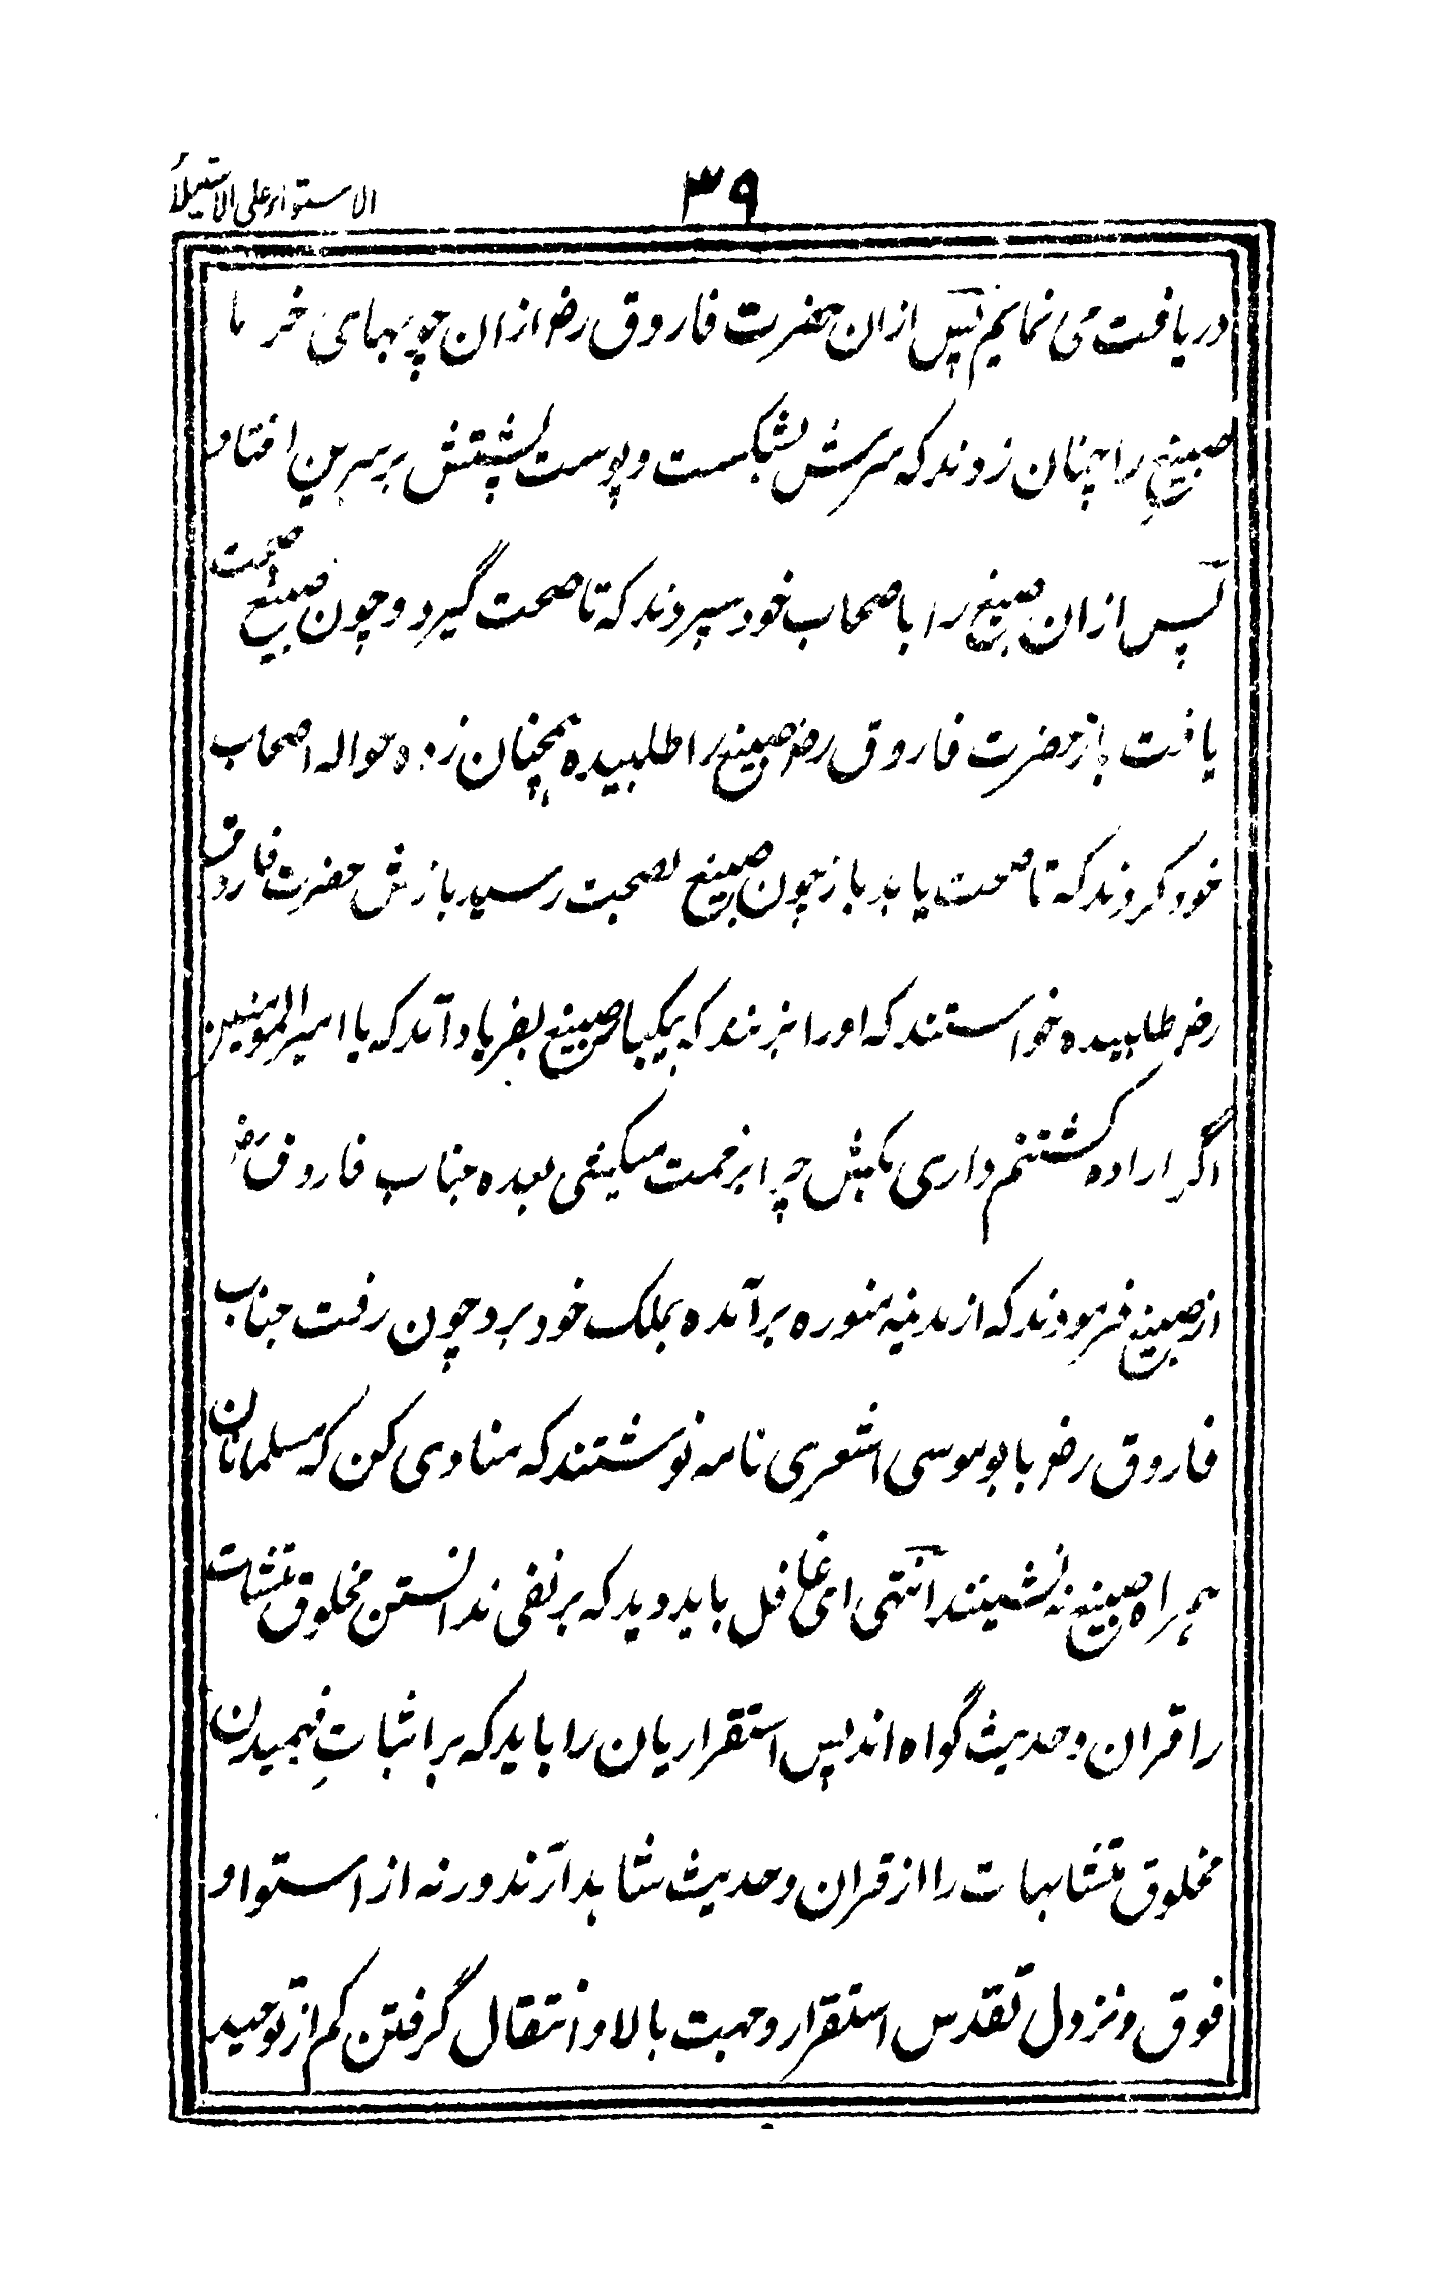 ۳۹
الاستواء علی الاستیلاء
دریافت می نمایم پس ازان حضرت فاروق رضر ازان چوبهای خرما
صبیغ را چنان زدند که سرش بشکست و پوست پشتش بر سرین افتاد
پس ازان صبیغ را باصحاب خود سپردند که تا صحت گیرد و چون صبیغ صحت
یافت باز حضرت فاروق رضر صبیغ را طلبیده همچنان زده حواله اصحاب
خود کردند که تا صحت یابد باز چون صبیغ بصحبت رسید بازش حضرت فاروق
رضر طلبیده خواستند که اورا بزنند که یکبار صبیغ بفریاد آمد که یا امیر المومنین
اگر اراده کشتنم داری بکش چرا بزحمت میکشی بعده جناب فاروق رضر
از صبیغ فرمودند که از مدینه منوره برآمده بملک خود برو چون رفت جناب
فاروق رضر بابو موسی اشعری نامه نوشتند که منادی کن که مسلمانان
همراه صبیغ نه نشینند انتهی ای غافل باید دید که بر نفی ندانستن مخلوق متشابهات
را قران و حدیث گواه اند پس استقراریان را باید که بر اثباتِ فهمیدن
مخلوق متشابهات را از قران و حدیث شاهد آرند ورنه از استوا و
فوق و نزول تقدس استقرار و جهت بالا و انتقال گرفتن کم از توحید